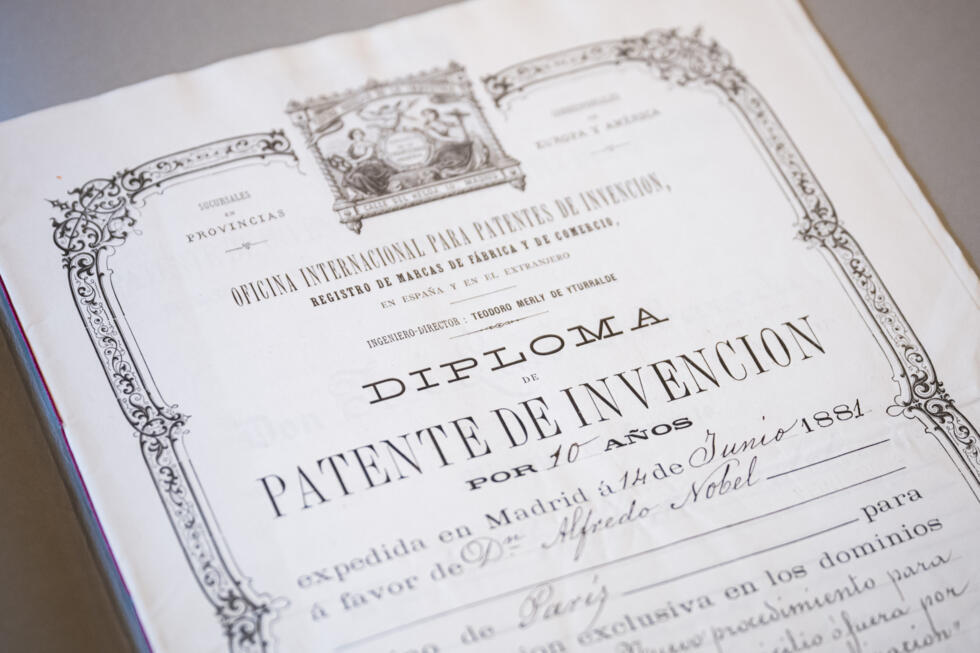 SUCURSALES
EN
PROVINCIAS
EUROPA Y AMÉRICA
CALLE DEL
OFICINA INTERNACIONAL PARA PATENTES DE INVENCION,
REGISTRO DE MARCAS DE FÁBRICA Y DE COMERCIO,
EN ESPAÑA Y EN EL EXTRANJERO
INGENIERO-DIRECTOR: TEODORO MERLY DE YTURRALDE
DIPLOMA
DE
PATENTE DE INVENCION
POR 10 AÑOS
expedida en Madrid á 14 de Junio 1881
á favor de Dn Alfredo Nobel
de París para
exclusiva en los dominios
procedimiento para
ó fuera por